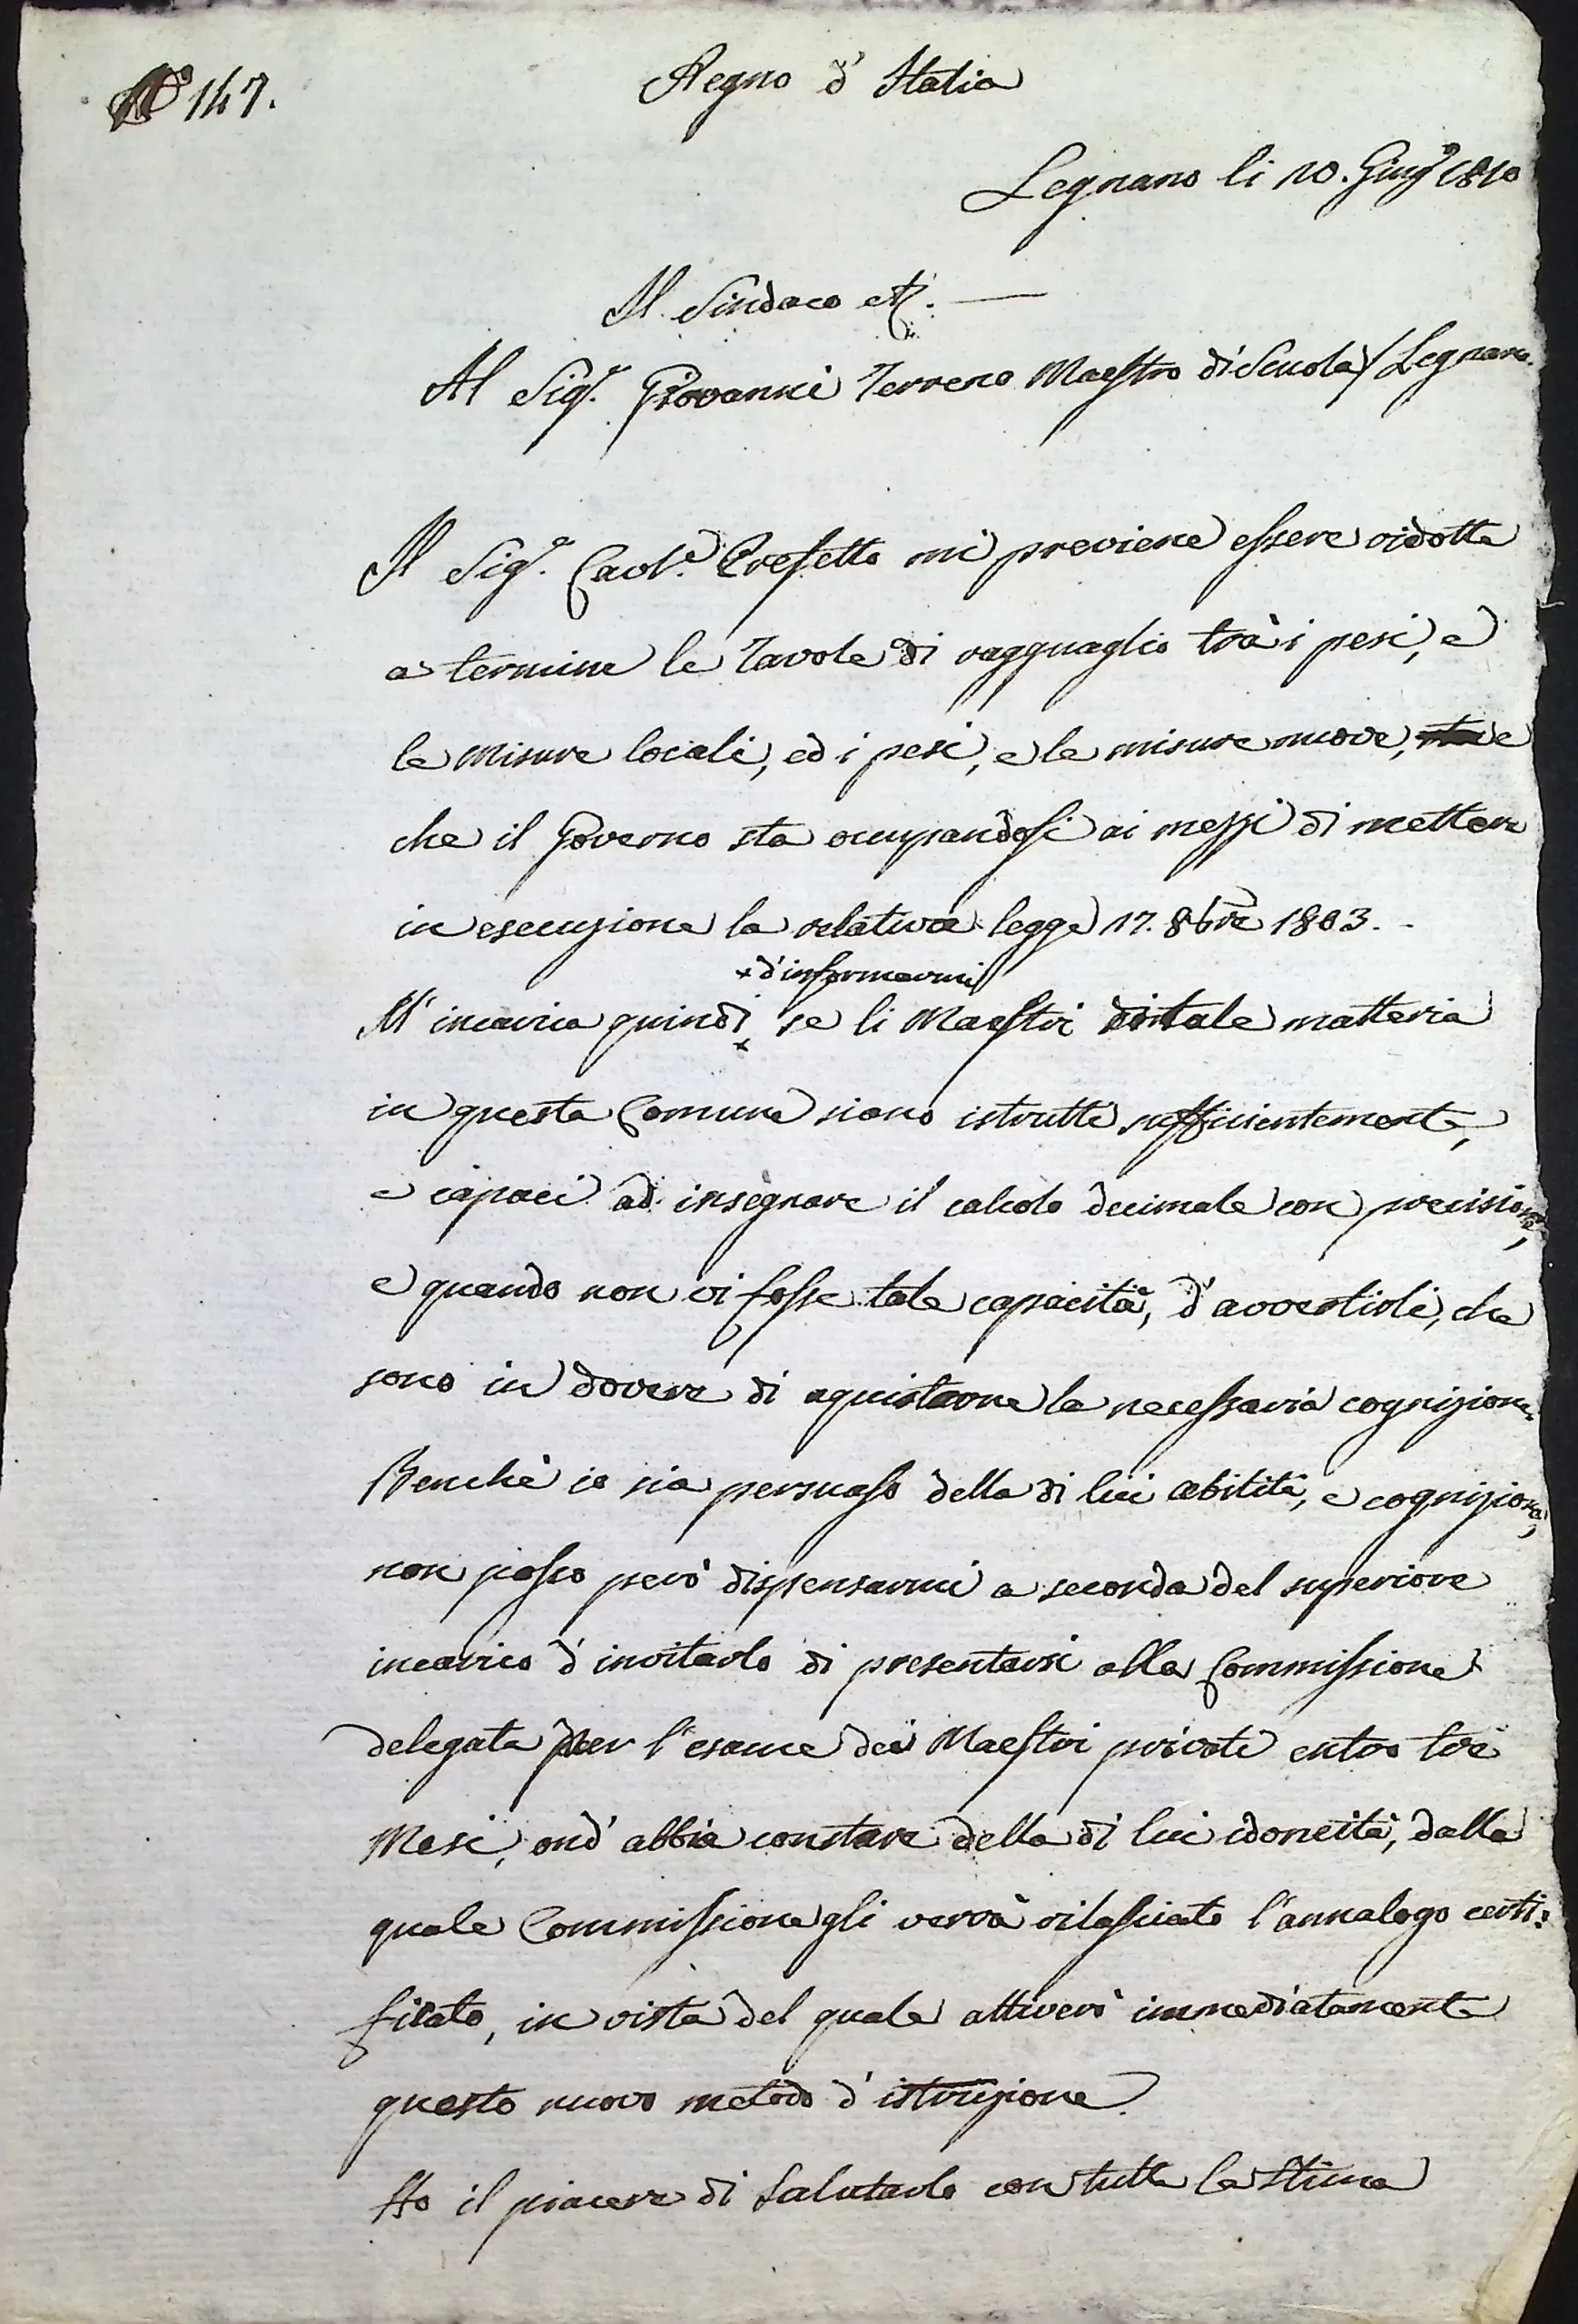 N° 147.
Regno d'Italia
Legnano li 20. Giug° 1810
Il Sindaco etc. —
Al Sigr. Giovanni Terreno Maestro di Scuola / Legnano.
Il Sigr. Cavre. Prefetto mi previene essere ridotte
a termine le Tavole di ragguaglio trà i pesi, e
le misure locali, ed i pesi, e le misure nuove, e
che il Governo sta occupandosi ai mezzi di mettere
in esecuzione la relativa legge 17. 8bre 1803. -
+ d'informarmi
M'incarica quindi + se li Maestri di tale matteria
in questa Comune siano istrutti sufficientemente,
e capaci ad insegnare il calcolo decimale con precisione,
e quando non vi fosse tale capacità, d'avvertirli, che
sono in dovere di aquistarne le necessaria cognizione.
Benchè io sia persuaso della di lui abilità, e cognizione,
non posso però dispensarmi a seconda del superiore
incarico d'invitarlo di presentarsi alla Commissione
delegata per l'esame dei Maestri privati entro tre
Mesi, ond'abbia constare della di lui idoneità, dalla
quale Commissione gli verrà rilasciato l'annalogo certi:
ficato, in vista del quale attiverà immediatamente
questo nuovo metodo d'istruzione.
Ho il piacere di salutarlo con tutta la stima